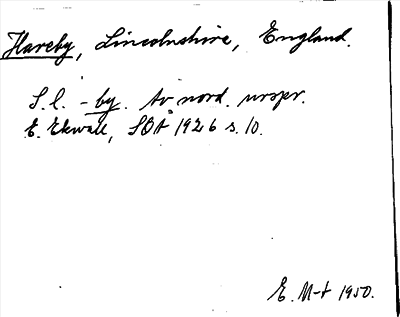 Hareby, Lincolnshire, England.
S.l. -by. Av nord. urspr.
E. Ekwall, SOÅ 1926 s. 10.
E. M-t 1950.